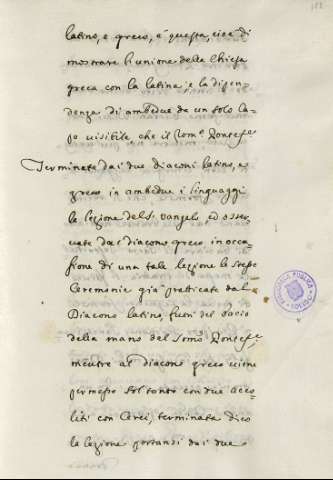 latino, e greco, è questa, cioè di
mostrare l'unione della Chiesa
greca con la latina e la dipen-
denza di ambedue da un solo Ca-
po visibile, che il Rom.º Pontef.e
Terminata dai due diaconi latino, e
greco in ambedue i linguaggi
la lezione del S. vangelo, ed osser-
vate dal diacono greco in occa-
sione di una tale lezione le stesse
Ceremonie già pratticate dal
Diacono latino, fuori del bacio
della mano del Somº Pontef.e
mentre al diacono greco viene
permesso soltanto con due acco-
liti con Cerei, terminata dico
la lezione portansi dai due